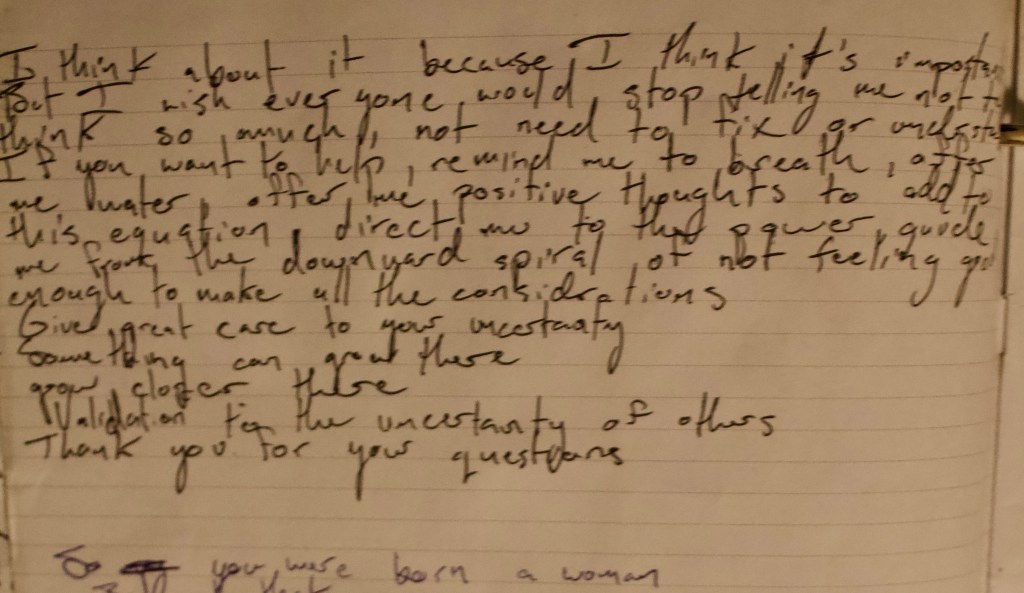 I think about it because I think it's importan
But I wish everyone would stop telling me not to
think so much, not need to fix or understa
If you want to help, remind me to breath, offer
me water, offer me positive thoughts to add to
this equation, direct me to that power, guide
me from the downward spiral of not feeling
enough to make all the considrations
Give great care to your uncertanty
Something can grow there
grow closer there
Validation for the uncertanty of others
Thank you for your questions
So you were born a woman